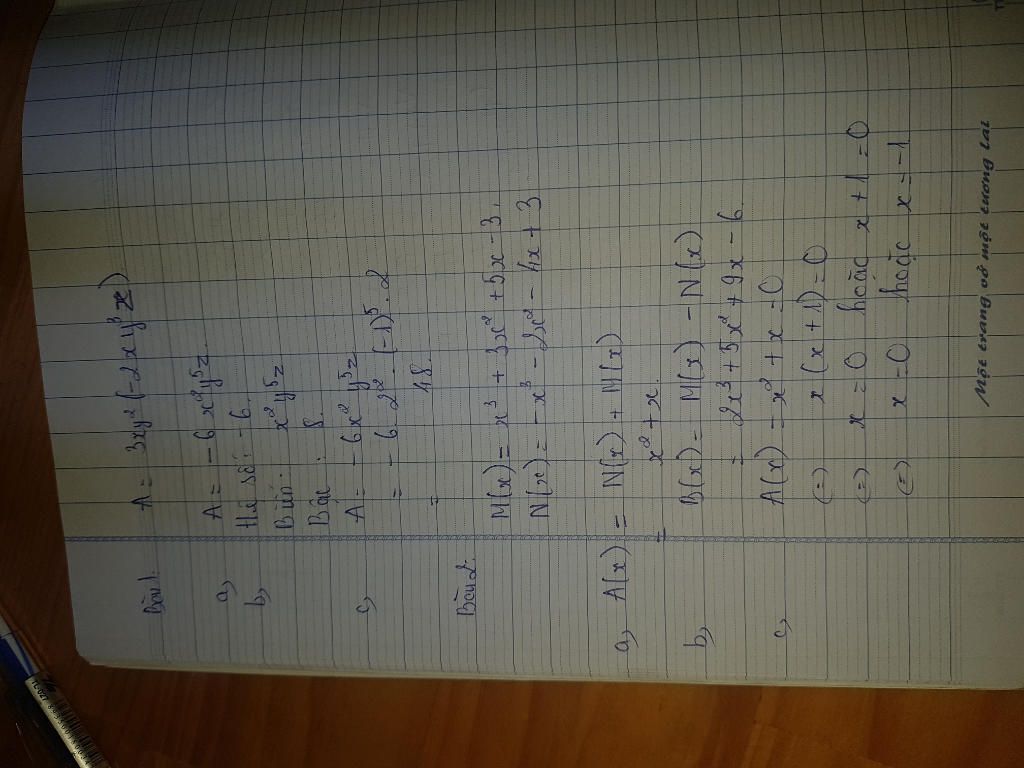 Bài 1: A = 3xy² (-2xy³z)
a, A = -6x²y⁵z.
b, Hệ số: -6.
Biến: x²y⁵z
Bậc: 8.
c, A = -6x²y⁵z
= -6.2².(-1)⁵.2
= 48.
Bài 2:
M(x) = x³ + 3x² + 5x - 3.
N(x) = -x³ - 2x² - 4x + 3
a, A(x) = N(x) + M(x)
= x² + x.
b, B(x) = M(x) - N(x)
= 2x³ + 5x² + 9x - 6.
c, A(x) = x² + x = 0
(=) x(x + 1) = 0
(=) x = 0 hoặc x + 1 = 0
(=) x = 0 hoặc x = -1
Một trang vở một tương lai